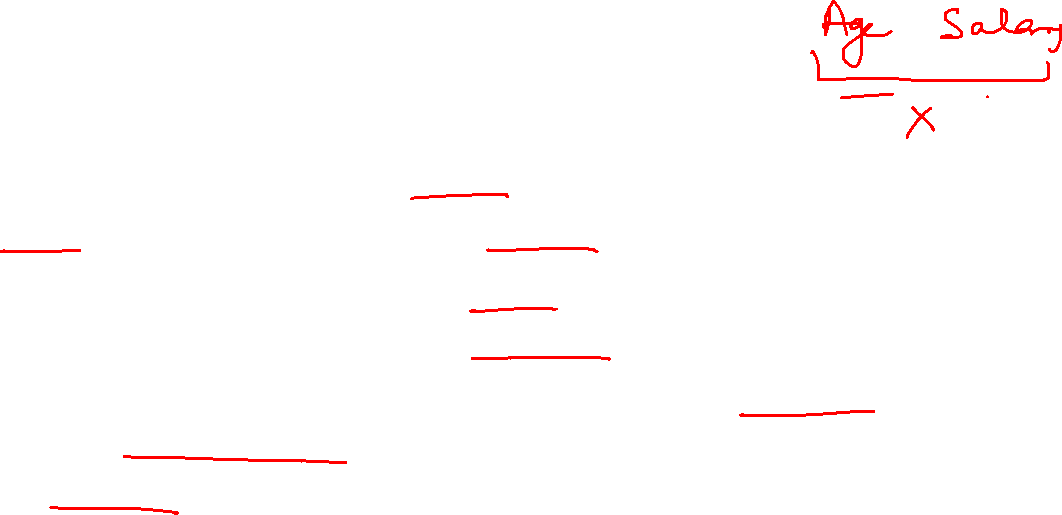 Age Salary
X